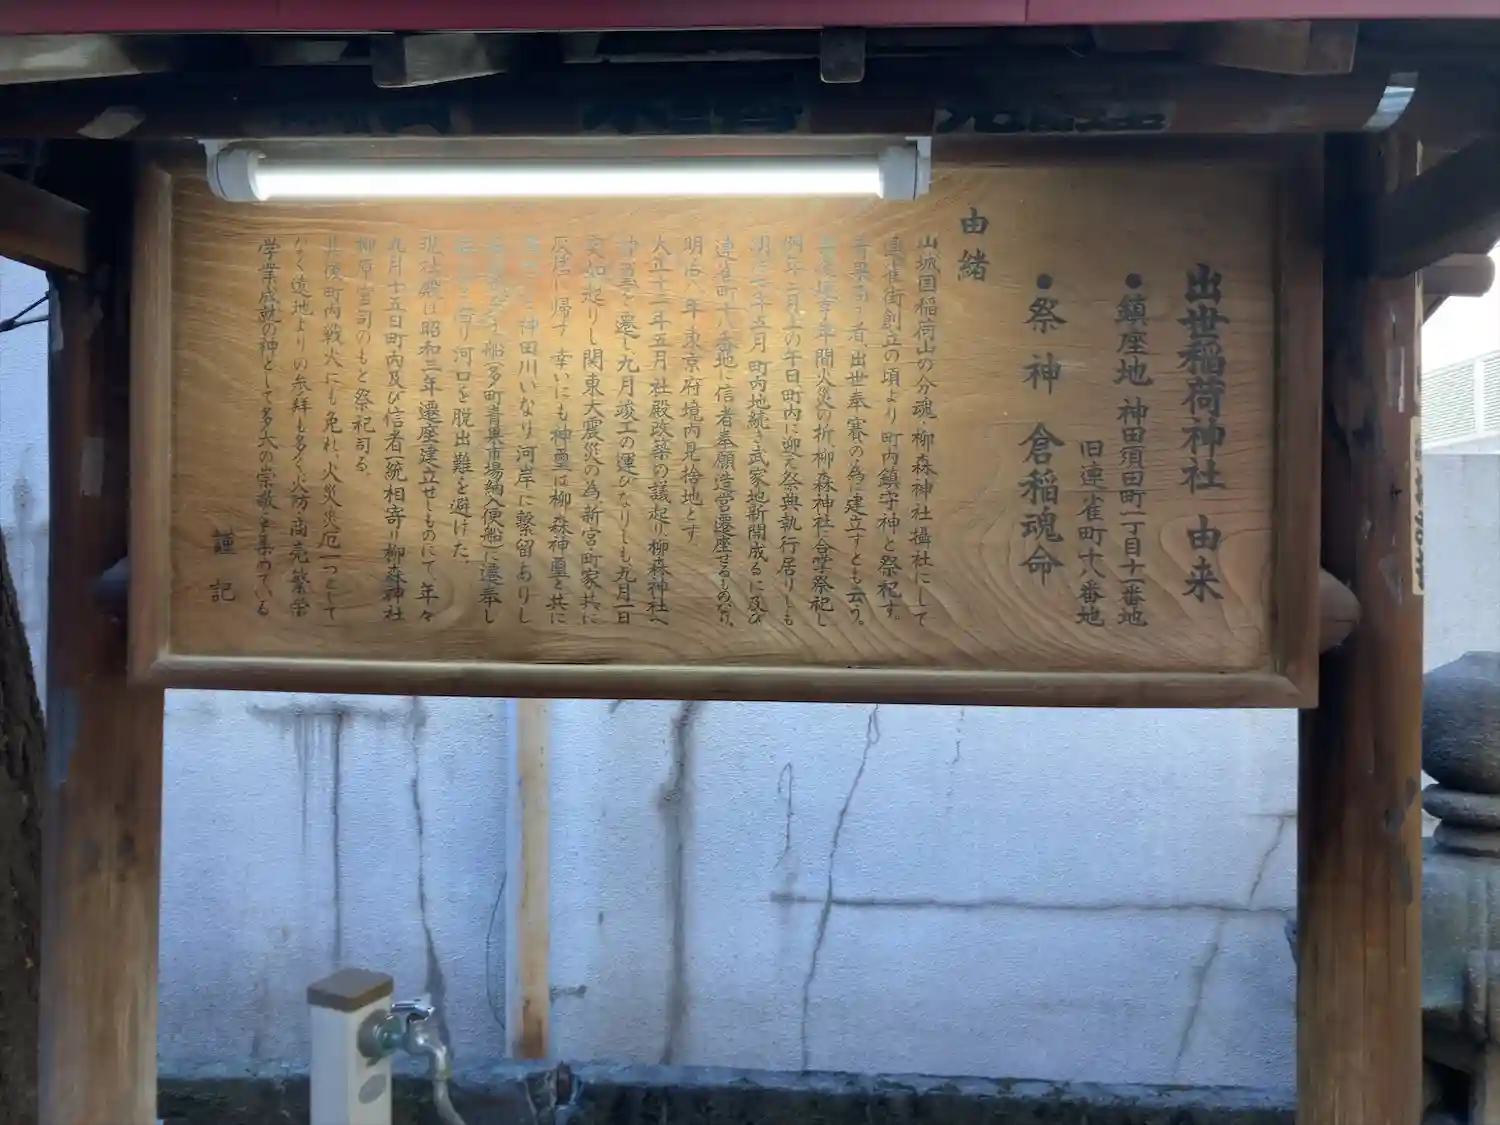 出世稲荷神社 由来
●鎮座地 神田須田町一丁目十一番地
旧連雀町十八番地
●祭神 倉稲魂命
由緒
山城国稲荷山の分魂、柳森神社攝社にして
連雀街創立の頃より町内鎮守神と祭祀す。
青果商う者、出世奉賽の為に建立すとも云う。
年間火災の折柳森神社に合学祭祀し
例年二月上の午日町内に迎え祭典執行居りしも
年五月町内地続き武家地新開成るに及び
連雀町十八番地に信者基願造営遷座せるものなり。
明治八年東京府境内見捨地とす。
大正十二年五月社殿改築の議起り、柳森神社へ
神璽を遷し九月竣工の運びなりしも九月一日
突如起りし関東大震災の為、新宮・町家共に
灰燼に帰す。幸いにも神璽は柳森神璽と共に
神田川いなり河岸に繋留ありし
船(多町青果市場納入便船)に遷奉し
河口を脱出難を避けた。
現社殿は昭和三年遷座建立せしものにて、年々
九月十五日町内及び信者一統相寄り柳森神社
柳原宮司のもと祭祀司る。
其後町内戦火にも免れ、火災災厄一つとして
なく遠地よりの参拝も多く火防・商売繁栄
学業成就の神として多大の崇敬を集めている
謹記